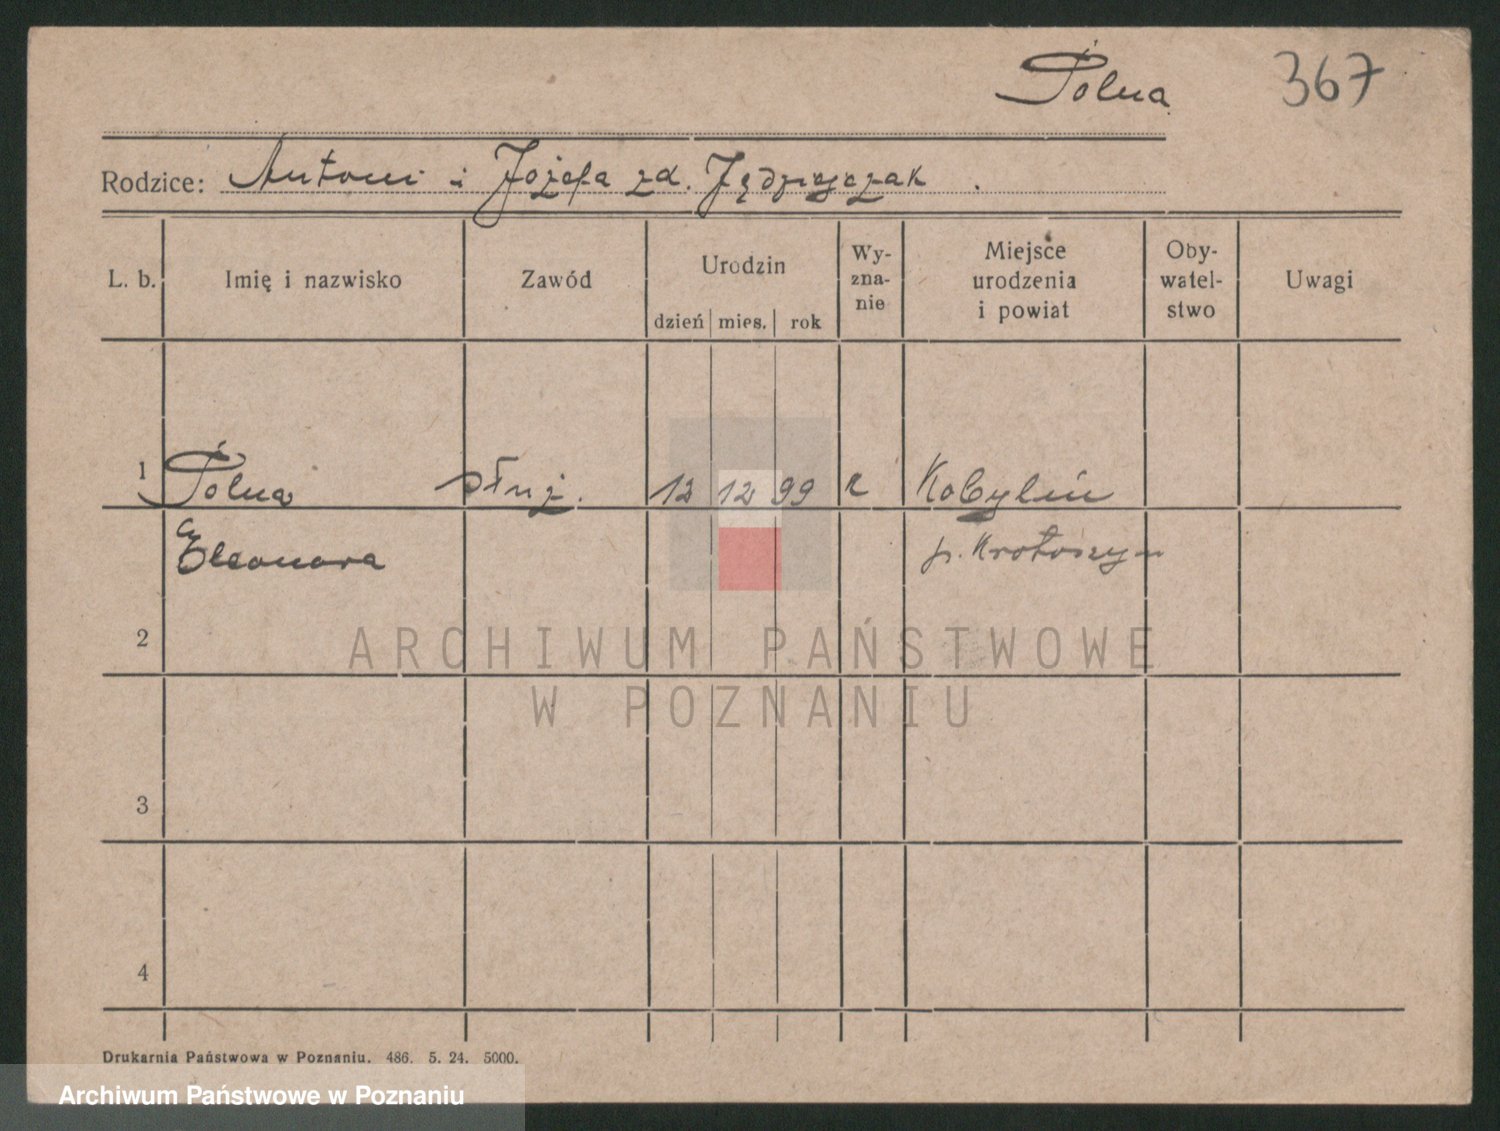 Żolna 367
Rodzice: Antoni i Józefa zd. Jędrzejczak.
L. b. Imię i nazwisko Zawód Urodzin dzień mies. rok Wy-zna-nie Miejsce urodzenia i powiat Oby-watel-stwo Uwagi
1 Żolna służ. 12 12 99 k Kobylin
Eleonora p. Krotoszyn
2
ARCHIWUM PAŃSTWOWE
W POZNANIU
3
4
Drukarnia Państwowa w Poznaniu. 486. 5. 24. 5000.
Archiwum Państwowe w Poznaniu